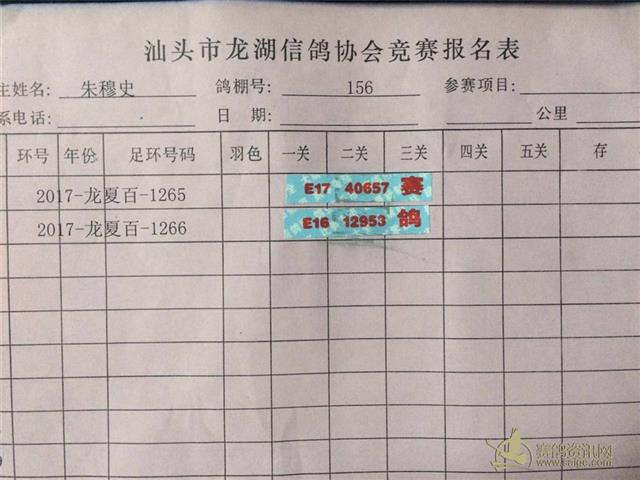 汕头市龙湖信鸽协会竞赛报名表
主姓名: 朱穆史 鸽棚号: 156 参赛项目:
系电话: 日 期: 公里
环号 年份 足环号码 羽色 一关 二关 三关 四关 五关 存
2017-龙夏百-1265 E17 40657 赛
2017-龙夏百-1266 E16 12953 鸽
赛鸽资讯网
www.saige.com